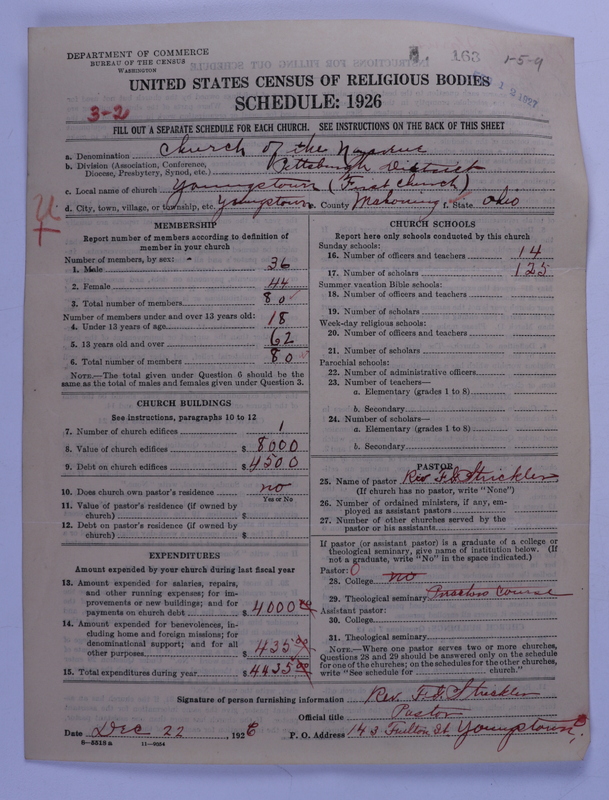 DEPARTMENT OF COMMERCE
BUREAU OF THE CENSUS
WASHINGTON
163
1-5-9
1927
UNITED STATES CENSUS OF RELIGIOUS BODIES
SCHEDULE: 1926
3-2
FILL OUT A SEPARATE SCHEDULE FOR EACH CHURCH. SEE INSTRUCTIONS ON THE BACK OF THIS SHEET
a. Denomination Church of the Nazarene
b. Division (Association, Conference, Diocese, Presbytery, Synod, etc.) Pittsburgh District
c. Local name of church Youngstown (First Church)
d. City, town, village, or township, etc. Youngstown e. County Mahoning f. State Ohio
MEMBERSHIP
Report number of members according to definition of
member in your church
Number of members, by sex:
1. Male 36
2. Female 44
3. Total number of members 80
Number of members under and over 13 years old:
4. Under 13 years of age 18
5. 13 years old and over 62
6. Total number of members 80
NOTE.—The total given under Question 6 should be
the same as the total of males and females given under Question 3.
CHURCH BUILDINGS
See instructions, paragraphs 10 to 12
7. Number of church edifices 1
8. Value of church edifices $ 8000
9. Debt on church edifices $ 4500
10. Does church own pastor's residence no
Yes or No
11. Value of pastor's residence (if owned by
church) $
12. Debt on pastor's residence (if owned by
church) $
EXPENDITURES
Amount expended by your church during last fiscal year
13. Amount expended for salaries, repairs,
and other running expenses; for im-
provements or new buildings; and for
payments on church debt $ 4000 00
14. Amount expended for benevolences, in-
cluding home and foreign missions; for
denominational support; and for all
other purposes $ 435 00
15. Total expenditures during year $ 4435 00
CHURCH SCHOOLS
Report here only schools conducted by this church
Sunday schools:
16. Number of officers and teachers 14
17. Number of scholars 125
Summer vacation Bible schools:
18. Number of officers and teachers
19. Number of scholars
Week-day religious schools:
20. Number of officers and teachers
21. Number of scholars
Parochial schools:
22. Number of administrative officers
23. Number of teachers—
a. Elementary (grades 1 to 8)
b. Secondary
24. Number of scholars—
a. Elementary (grades 1 to 8)
b. Secondary
PASTOR
25. Name of pastor Rev F. G. Strickler
(If church has no pastor, write "None")
26. Number of ordained ministers, if any, em-
ployed as assistant pastors
27. Number of other churches served by the
pastor or his assistants
If pastor (or assistant pastor) is a graduate of a college or
theological seminary, give name of institution below. (If
not a graduate, write "No" in the space indicated.)
Pastor: 0
28. College no
29. Theological seminary Course
Assistant pastor:
30. College
31. Theological seminary
NOTE.—Where one pastor serves two or more churches,
Questions 28 and 29 should be answered only on the schedule
for one of the churches; on the schedules for the other churches,
write "See schedule for church."
Signature of person furnishing information Rev. F. G. Strickler
Official title Pastor
Date Dec 22, 1926 P. O. Address 143 Fulton St. Youngstown, O
8-5518a 11-9054